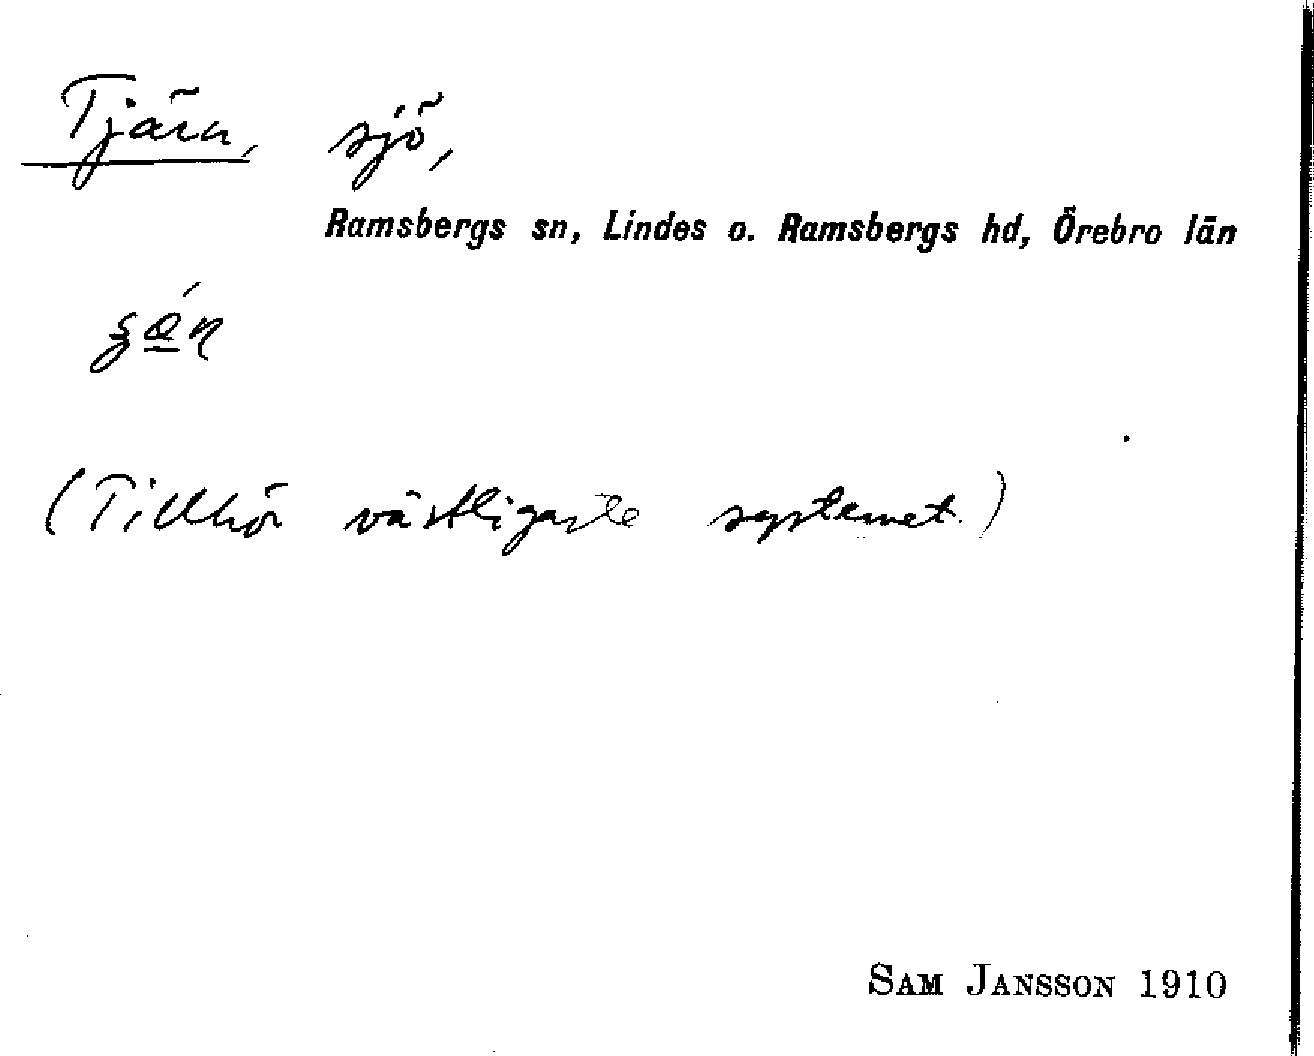 Tjärn, sjö,
Ramsbergs sn, Lindes o. Ramsbergs hd, Örebro län
(Tillhör västligaste systemet.)
SAM JANSSON 1910